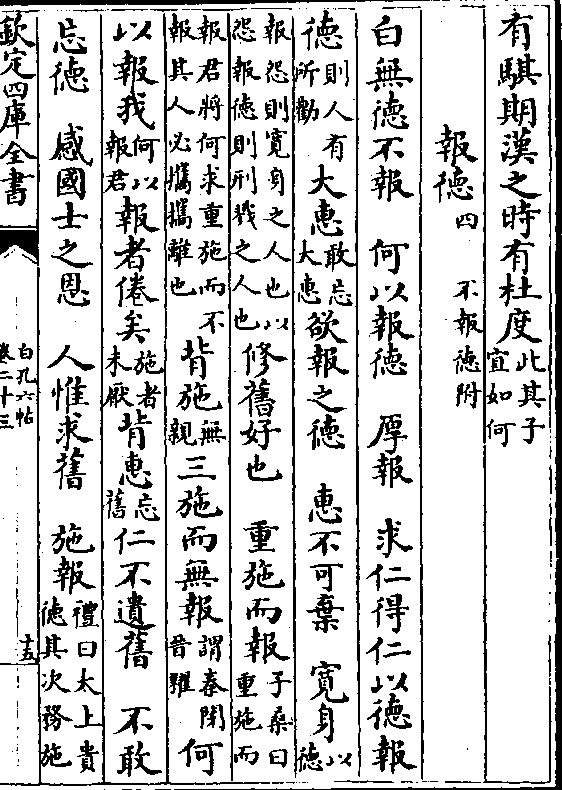 有騏期漢之時有杜度此其子宜如何
報德四 不報德附
白無德不報 何以報德 厚報 求仁得仁以德報
德則人有所勸 大惠敢忘大惠 欲報之德 惠不可棄 寬身以德
報怨則寬身之人也以怨報德則刑戮之人也 修舊好也 重施而報子桑曰重施而
報君將何求重施而不報其人必攜攜離也 背施無親 三施而無報謂秦閉晉糴 何
以報我何以報君 報者倦矣施者未厭 背惠忘舊 仁不遺舊 不敢
忘德 感國士之恩 人惟求舊 施報禮曰太上貴德其次務施
欽定四庫全書
白孔六帖
卷二十三
十五